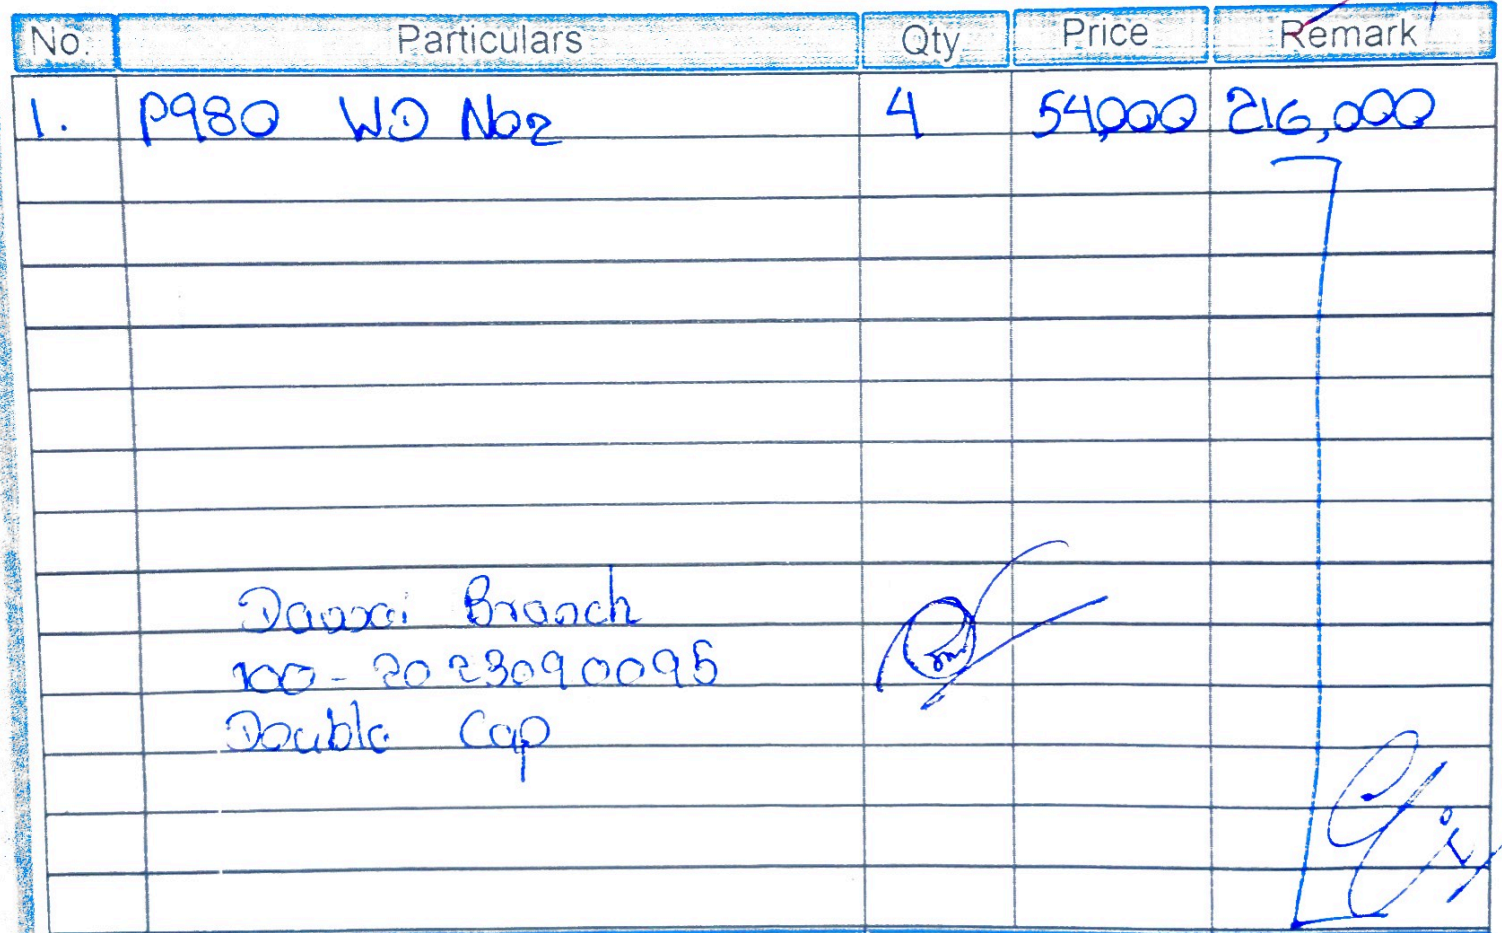 No. Particulars Qty Price Remark
1. P980 WD No2 4 54,000 216,000
Branch
100-2023090095
Double Cap